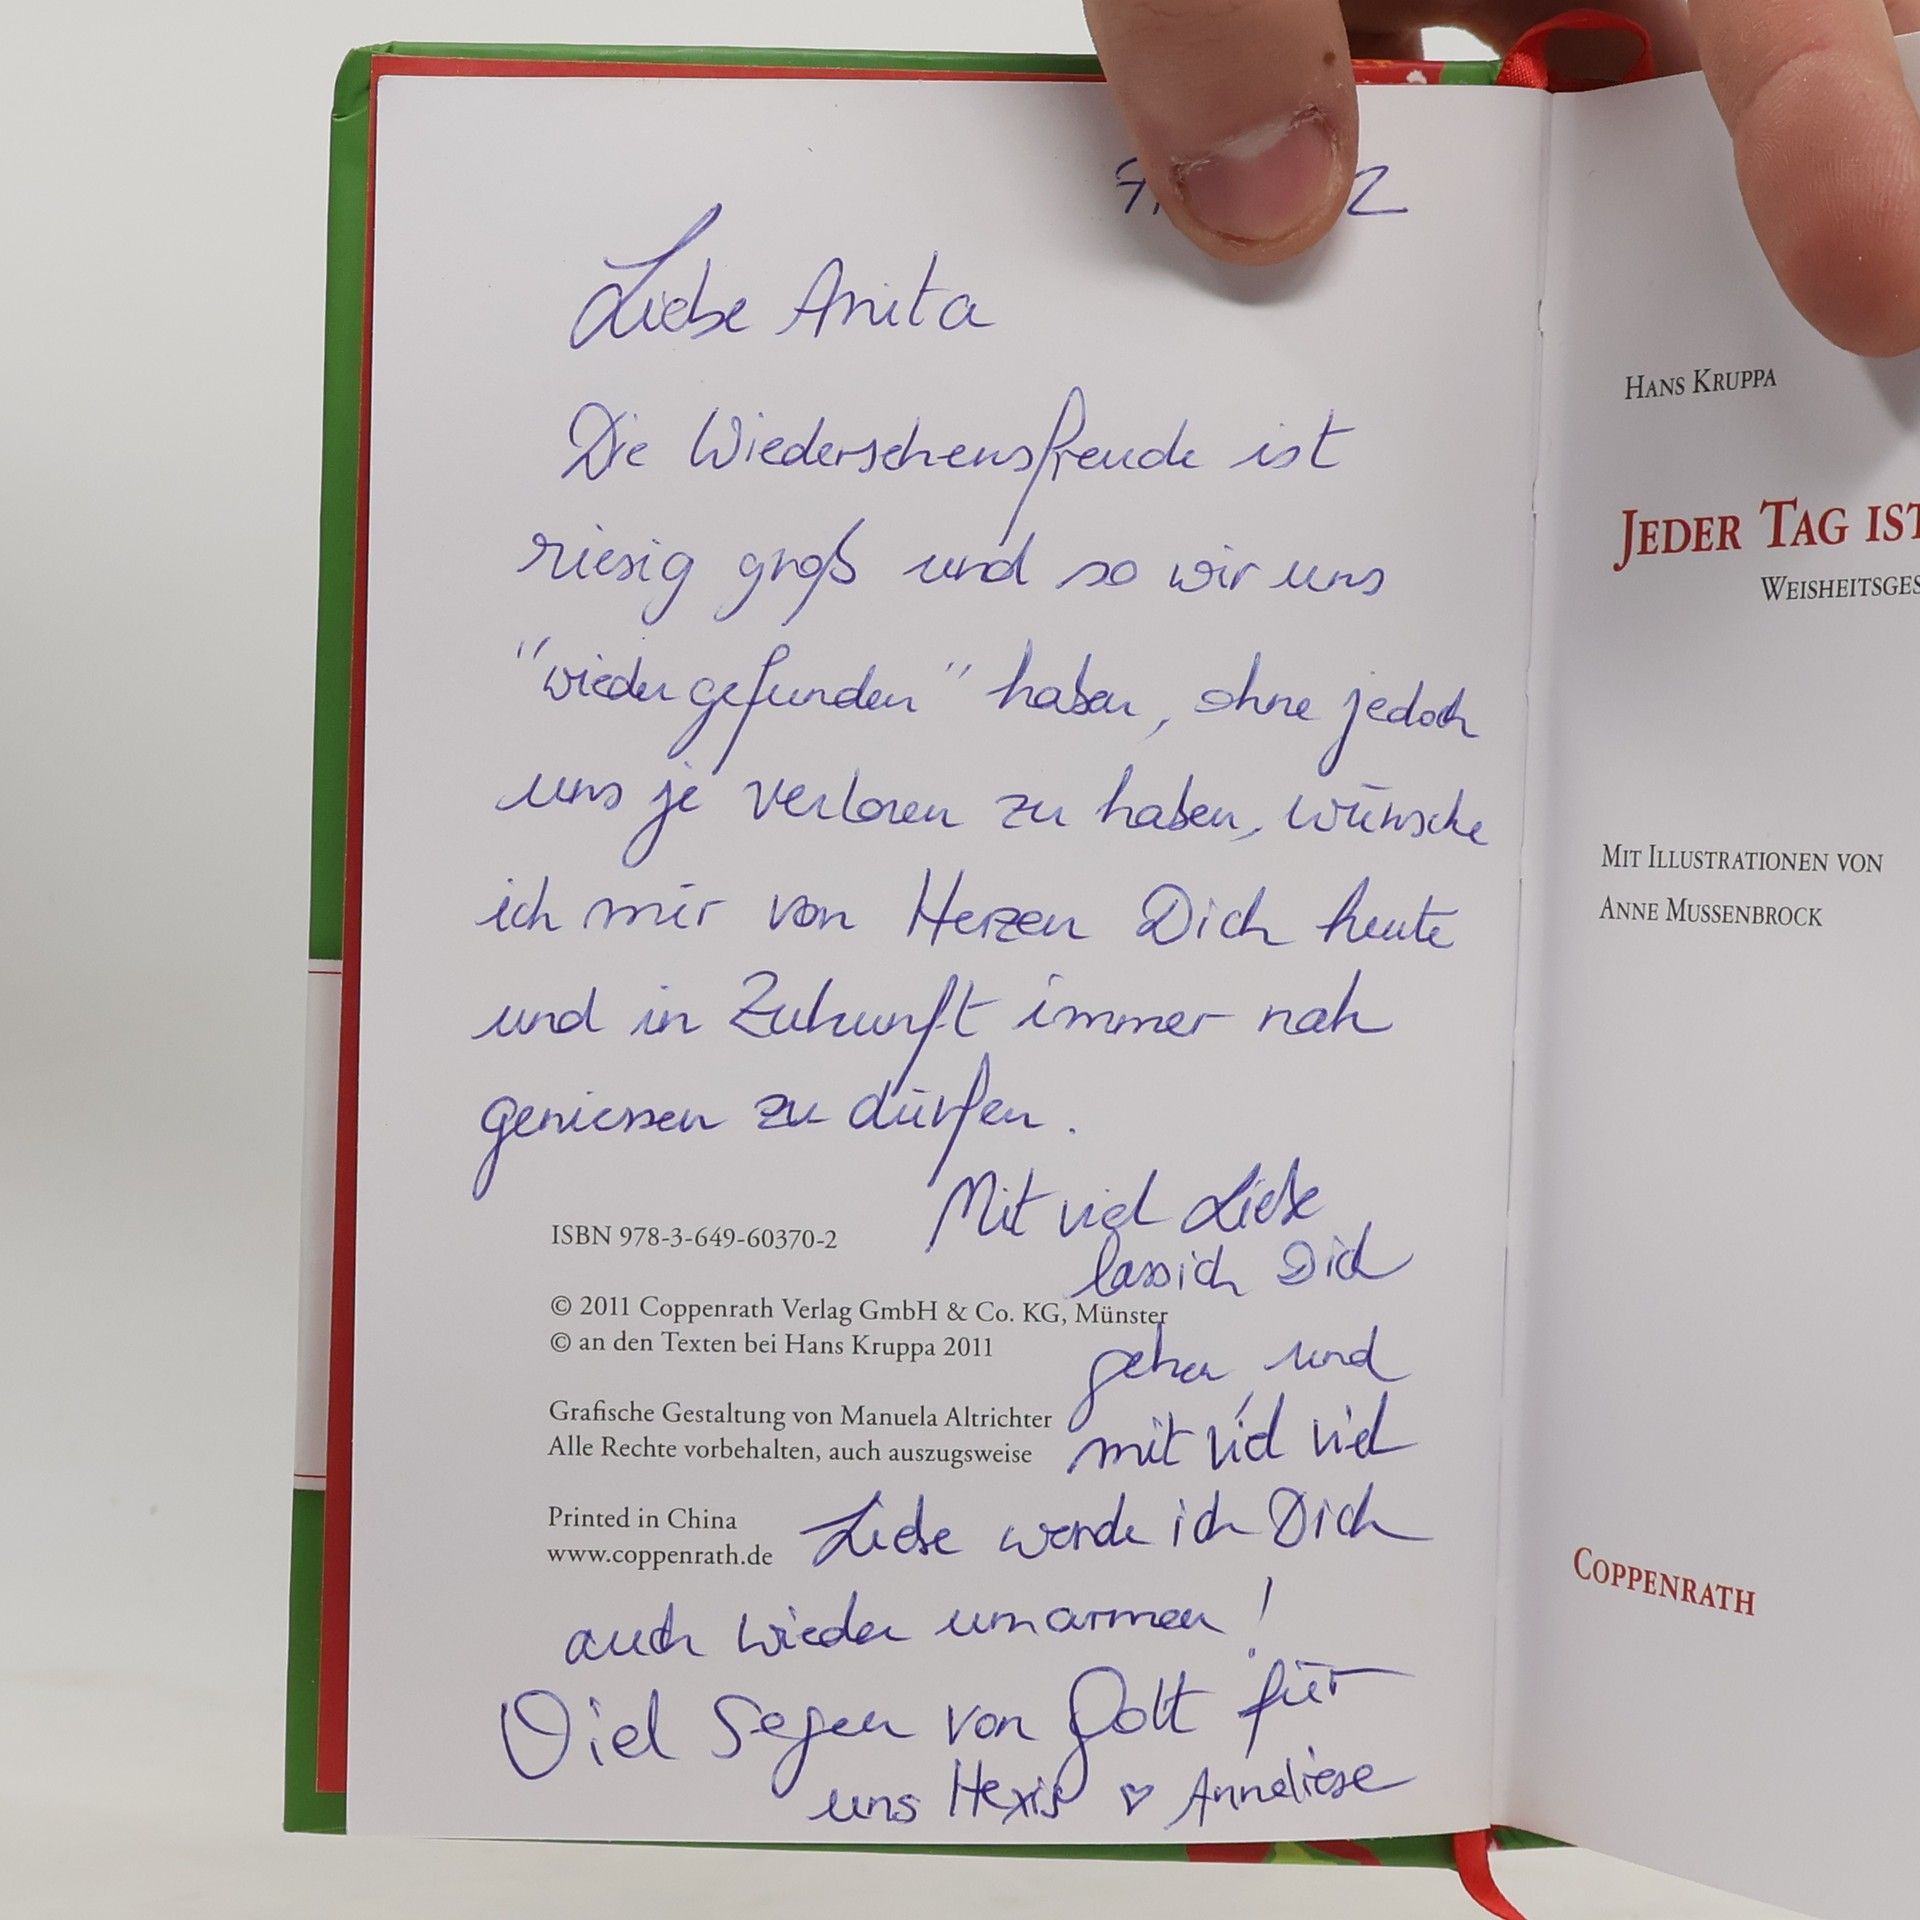 Liebe Anita
Die Wiedersehensfreude ist
riesig groß und so wir uns
"wiedergefunden" haben, ohne jedoch
uns je verloren zu haben, wünsche
ich mir von Herzen Dich heute
und in Zukunft immer nah
geniessen zu dürfen.
Mit viel Liebe
lass ich Dich
gehen und
mit viel viel
Liebe werde ich Dich
auch wieder umarmen!
Viel Segen von Gott für
uns Hexis ♡ Anneliese
ISBN 978-3-649-60370-2
© 2011 Coppenrath Verlag GmbH & Co. KG, Münster
© an den Texten bei Hans Kruppa 2011
Grafische Gestaltung von Manuela Altrichter
Alle Rechte vorbehalten, auch auszugsweise
Printed in China
www.coppenrath.de
HANS KRUPPA
JEDER TAG IST
WEISHEITSGES
MIT ILLUSTRATIONEN VON
ANNE MUSSENBROCK
COPPENRATH